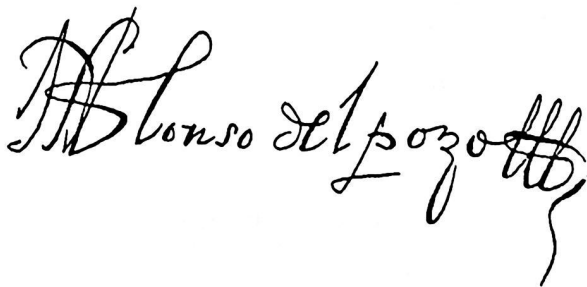 Alonso del pozo